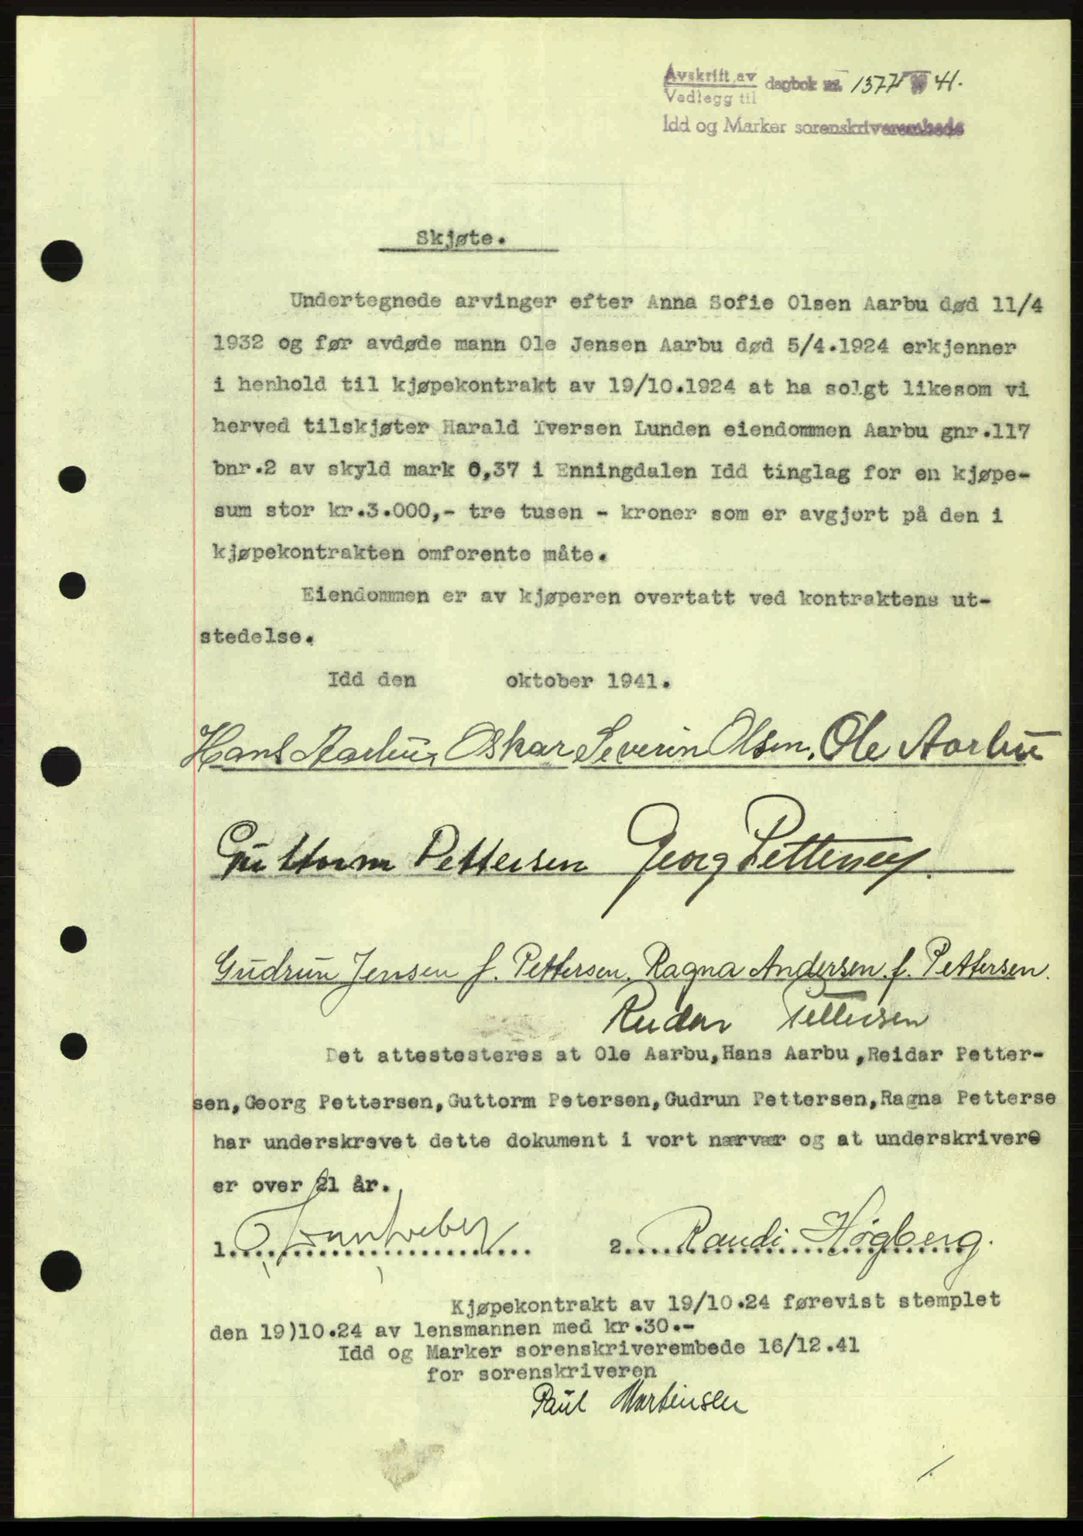 Avskrift av
Vedlegg til dagbok nr. 1377 19 41.
Idd og Marker sorenskriverembede
Skjøte.
Undertegnede arvinger efter Anna Sofie Olsen Aarbu død 11/4
1932 og før avdøde mann Ole Jensen Aarbu død 5/4.1924 erkjenner
i henhold til kjøpekontrakt av 19/10.1924 at ha solgt likesom vi
herved tilskjøter Harald Iversen Lunden eiendommen Aarbu gnr.117
bnr.2 av skyld mark 0,37 i Enningdalen Idd tinglag for en kjøpe-
sum stor kr.3.000,- tre tusen - kroner som er avgjort på den i
kjøpekontrakten omforente måte.
Eiendommen er av kjøperen overtatt ved kontraktens ut-
stedelse.
Idd den oktober 1941.
Hans Aarbu, Oskar Severin Olsen, Ole Aarbu
Guttorm Pettersen Georg Pettersen.
Gudrun Jensen f. Pettersen, Ragna Andersen f. Pettersen.
Reidar Pettersen
Det attestesteres at Ole Aarbu, Hans Aarbu, Reidar Petter-
sen, Georg Pettersen, Guttorm Petersen, Gudrun Pettersen, Ragna Petterse
har underskrevet dette dokument i vort nærvær og at underskrivere
er over 21 år.
1. 2. Randi Høgberg.
Kjøpekontrakt av 19/10.24 førevist stemplet
den 19)10.24 av lensmannen med kr.30.-
Idd og Marker sorenskriverembede 16/12.41
for sorenskriveren
Paul Martinsen